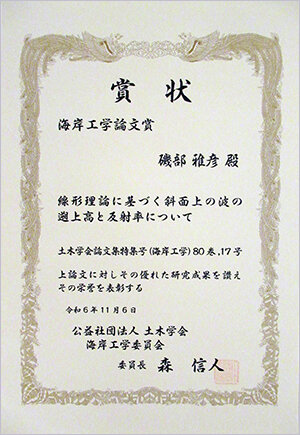 賞状
海岸工学論文賞
磯部 雅彦 殿
線形理論に基づく斜面上の波の
遡上高と反射率について
土木学会論文集特集号(海岸工学)80巻,17号
上論文に対しその優れた研究成果を讃え
その栄誉を表彰する
令和6年11月6日
公益社団法人 土木学会
海岸工学委員会
委員長 森 信人